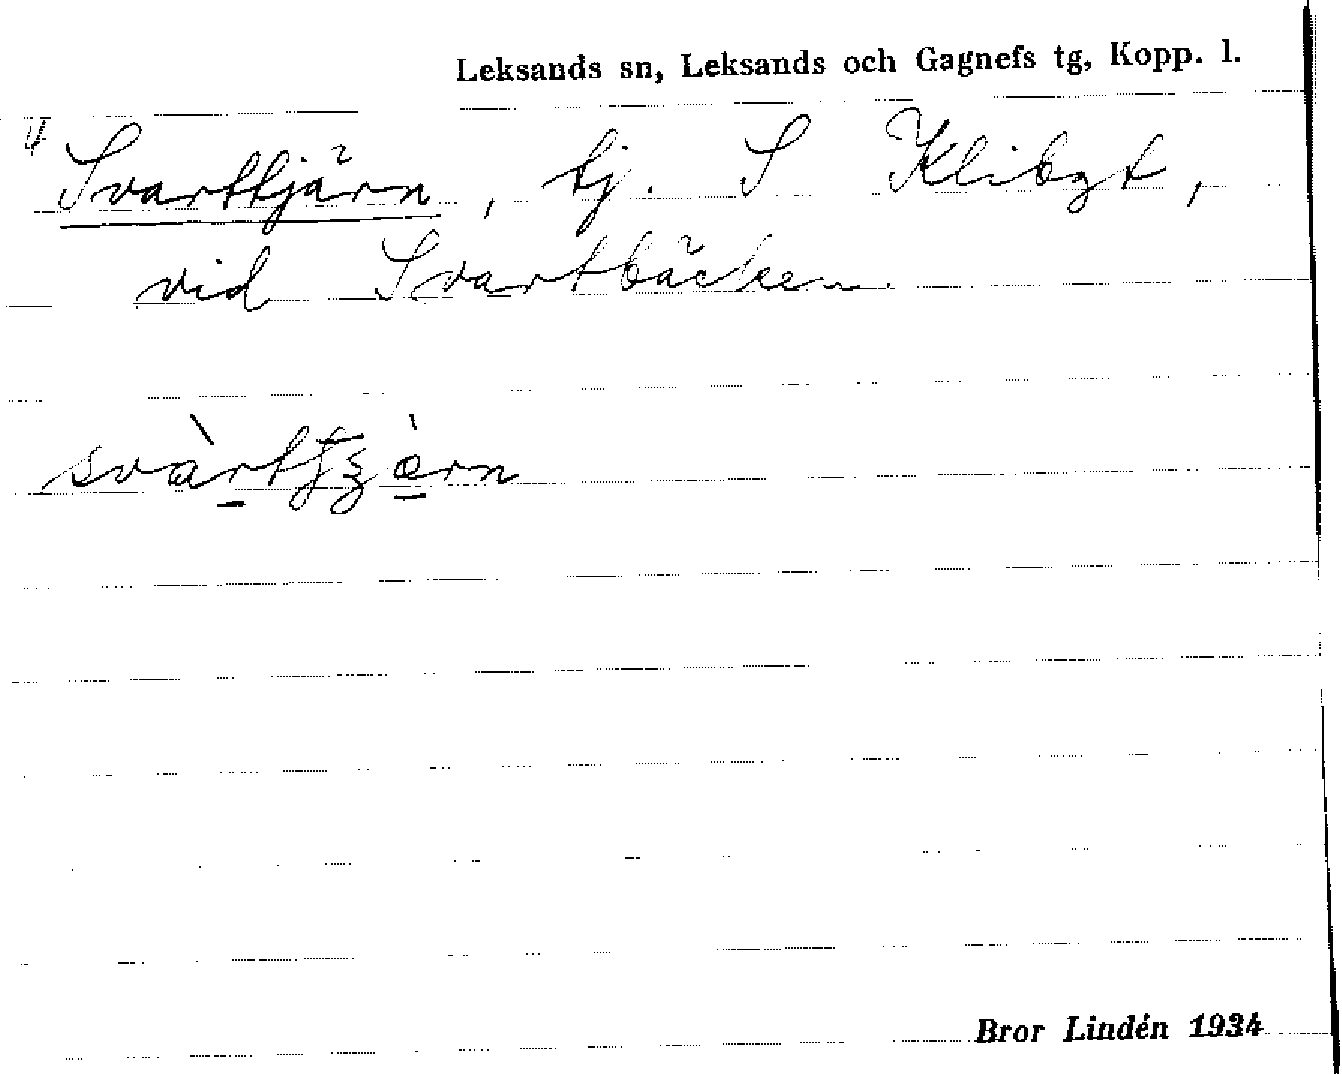 Leksands sn, Leksands och Gagnefs tg, Kopp. l.
Svarttjärn, tj. S Klibgt,
vid Svartbäcken.
Bror Lindén 1934